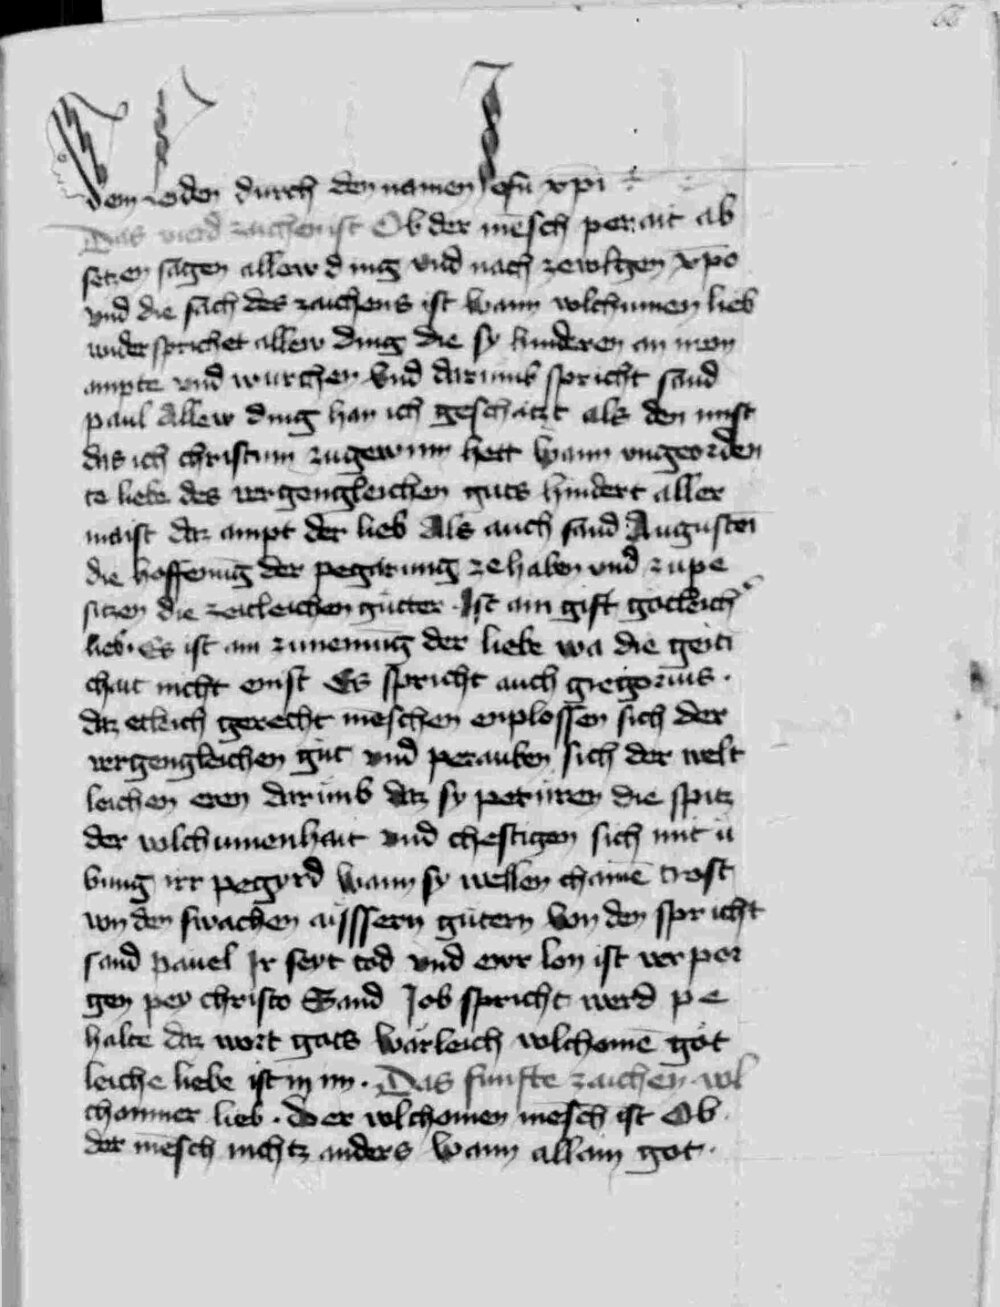 66
Vem reden durch den namen Jesu xpi
Das vierd zaichen ist Ob der mēsch perait ab
seczen sagen allew ding vnd nach zewolgen xpo
vnd die sach des zaichens ist wann volchumen lieb
wider sprichet allew ding die sy hinderen an irem
ampte vnd wurchen vnd darumb spricht sand
paul Allew ding han ich geschäczt als den mist
das ich christum zugewinn hett wann vngeorden
te liebe des vergengkleichen guts hindert aller
maist daz ampt der lieb Als auch sand Augustein
die hoffenung der pegarung ze haben vnd zu pe
siczen die zeitleichen gütter · Ist ain gift götleich
lieb · Es ist ain zunemung der liebe wa die geiti
chait nicht enist Es spricht auch gregorius ·
daz etleich gerecht mēschen enplossen sich der
vergengkleichen güt vnd perauben sich der welt
leichen eren darumb daz sy perüren die spicz
der volchumenhait vnd chestigen sich mit ü
bung irr pegyrd wann sy wellen chainē trost
von den swachen aüsssern gütern von den spricht
sand pauel Ir seyt tod vnd ewr lon ist verpor
gen pey christo Sand Job spricht werd pe
halte daz wort gots wärleich volchomē göt
leiche liebe ist in im · Das funfte zaichen vol
chomner lieb · Der volchomen mēsch ist Ob
der mēsch nichtz anders wann allain got ·